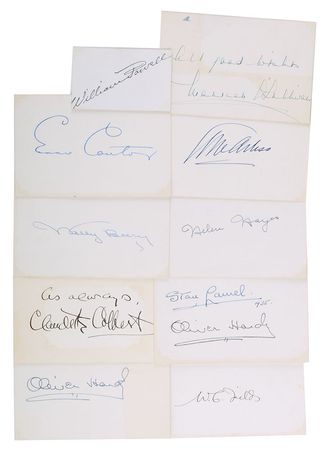 William Powell
All good wishes
Eddie Cantor
Wally Beery
Helen Hayes
As always,
Claudette Colbert
Stan Laurel.
Oliver Hardy
Oliver Hardy
W C Fields